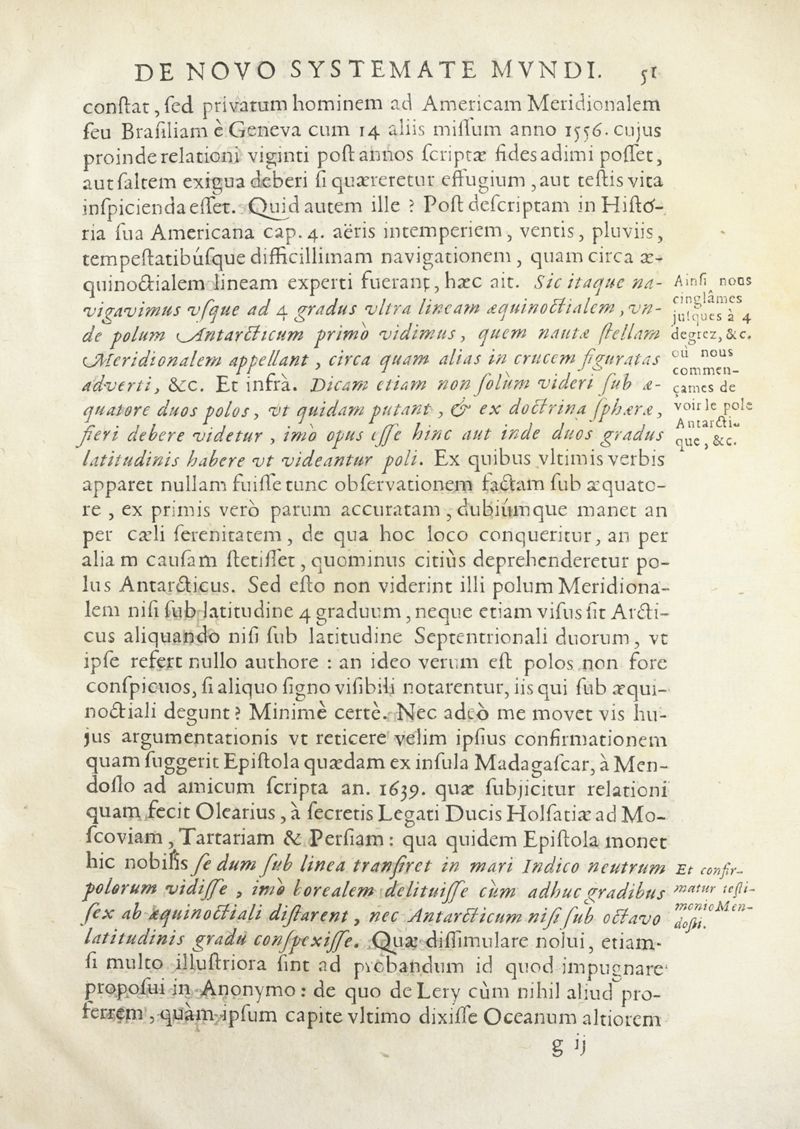 DE NOVO SYSTEMATE MVNDI. 51
conſtat, ſed privatum hominem ad Americam Meridionalem
ſeu Braſiliam è Geneva cum 14 aliis miſſum anno 1556. cujus
proinde relationi viginti poſt annos ſcriptæ fides adimi poſſet,
aut ſaltem exigua deberi ſi quæreretur effugium, aut teſtis vita
inſpicienda eſſet. Quid autem ille ? Poſt deſcriptam in Hiſto-
ria ſua Americana cap. 4. aëris intemperiem, ventis, pluviis,
tempeſtatibúſque difficillimam navigationem, quam circa æ-
quinoctialem lineam experti fuerant, hæc ait. Sic itaque na-
vigavimus vſque ad 4 gradus vltra lineam æquinoctialem, vn-
de polum Antarcticum primo vidimus, quem nautæ ſtellam
Meridionalem appellant, circa quam alias in crucem figuratas
adverti, &c. Et infrà. Dicam etiam non ſolùm videri ſub æ-
quatore duos polos, vt quidam putant, & ex doctrina ſphæræ,
fieri debere videtur, imò opus eſſe hinc aut inde duos gradus
latitudinis habere vt videantur poli. Ex quibus vltimis verbis
apparet nullam fuiſſe tunc obſervationem factam ſub æquato-
re, ex primis verò parum accuratam, dubiúmque manet an
per cæli ſerenitatem, de qua hoc loco conqueritur, an per
aliam cauſam ſtetiſſet, quominus citiùs deprehenderetur po-
lus Antarcticus. Sed eſto non viderint illi polum Meridiona-
lem niſi ſub latitudine 4 graduum, neque etiam viſus ſit Arcti-
cus aliquando niſi ſub latitudine Septentrionali duorum, vt
ipſe refert nullo authore : an ideo verum eſt polos non fore
conſpicuos, ſi aliquo ſigno viſibili notarentur, iis qui ſub æqui-
noctiali degunt ? Minimè certè. Nec adeò me movet vis hu-
jus argumentationis vt reticere velim ipſius confirmationem
quam ſuggerit Epiſtola quædam ex inſula Madagaſcar, à Men-
doſlo ad amicum ſcripta an. 1639. quæ ſubjicitur relationi
quam fecit Olearius, à ſecretis Legati Ducis Holſatiæ ad Mo-
ſcoviam, Tartariam & Perſiam : qua quidem Epiſtola monet
hic nobilis ſe dum ſub linea tranſiret in mari Indico neutrum
polorum vidiſſe, imò borealem delituiſſe cùm adhuc gradibus
ſex ab æquinoctiali diſtarent, nec Antarcticum niſi ſub octavo
latitudinis gradu conſpexiſſe. Quæ diſſimulare nolui, etiam-
ſi multo illuſtriora ſint ad probandum id quod impugnare
propoſui in Anonymo : de quo de Lery cùm nihil aliud pro-
ferrem, quàm ipſum capite vltimo dixiſſe Oceanum altiorem
g ij
Ainſi nous
cinglâmes
juſques à 4
degrez, &c.
où nous
commen-
çames de
voir le pole
Antarcti-
que, &c.
Et confir-
matur teſti-
monio Men-
doſli.